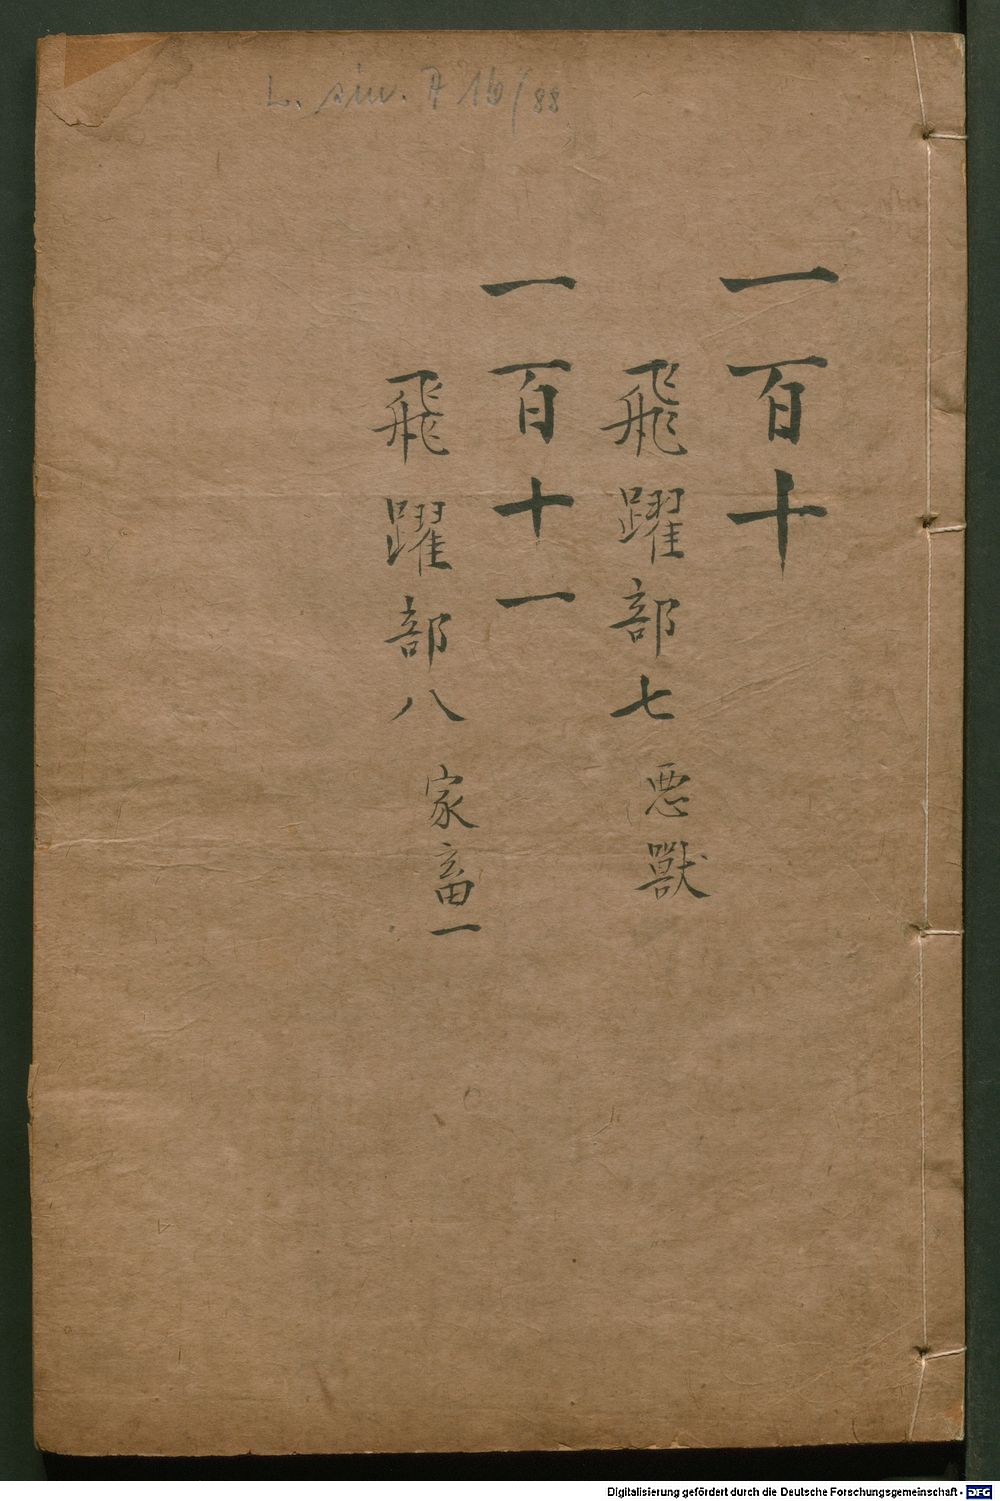 L. sin. A 16/88
一百十
飛躍部七 悪獸
一百十一
飛躍部八 家畜一
Digitalisierung gefördert durch die Deutsche Forschungsgemeinschaft - DFG